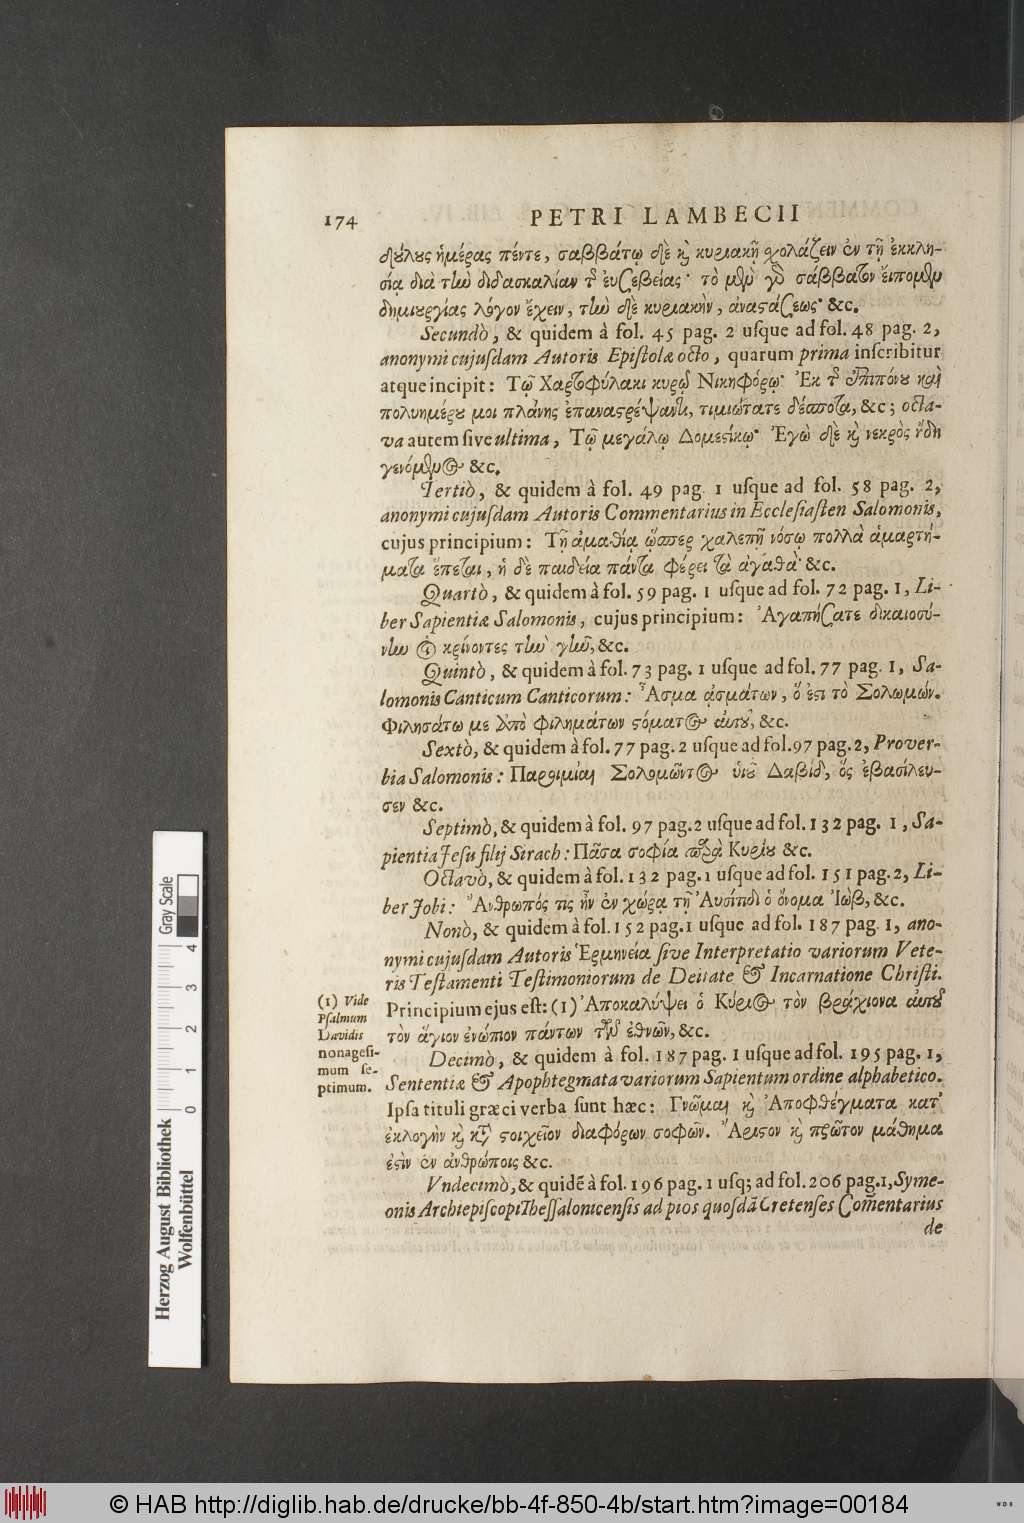 174 PETRI LAMBECII
δούλους ἡμέρας πέντε, σαββάτῳ δὲ καὶ κυριακῇ σχολάζειν ἐν τῇ ἐκκλη-
σίᾳ διὰ τὴν διδασκαλίαν τῆς εὐσεβείας· τὸ μὲν γὰρ σάββατον ἔιπομεν
δημιουργίας λόγον ἔχειν, τὴν δὲ κυριακὴν, ἀναστάσεως· &c.
Secundò, & quidem à fol. 45 pag. 2 usque ad fol. 48 pag. 2,
anonymi cujusdam Autoris Epistolæ octo, quarum prima inscribitur
atque incipit: Τῷ Χαρτοφύλακι κυρῷ Νικηφόρῳ· Ἐκ τῆς ἐπιπόνου καὶ
πολυημέρου μοι πλάνης ἐπαναστρέψαντι, τιμιώτατε δέσποτα, &c; octa-
va autem sive ultima, Τῷ μεγάλῳ Δομεστίκῳ· Ἐγὼ δὲ καὶ νεκρὸς ἤδη
γενόμενος &c.
Tertiò, & quidem à fol. 49 pag. 1 usque ad fol. 58 pag. 2,
anonymi cujusdam Autoris Commentarius in Ecclesiasten Salomonis,
cujus principium: Τῇ ἀμαθίᾳ ὥσπερ χαλεπῇ νόσῳ πολλὰ ἁμαρτή-
ματα ἕπεται, ἡ δὲ παιδεία πάντα φέρει τὰ ἀγαθὰ· &c.
Quartò, & quidem à fol. 59 pag. 1 usque ad fol. 72 pag. 1, Li-
ber Sapientiæ Salomonis, cujus principium: Ἀγαπήσατε δικαιοσύ-
νην οἱ κρίνοντες τὴν γῆν, &c.
Quintò, & quidem à fol. 73 pag. 1 usque ad fol. 77 pag. 1, Sa-
lomonis Canticum Canticorum: Ἆσμα ᾀσμάτων, ὅ ἐστι τὸ Σολωμών.
Φιλησάτω με ἀπὸ φιλημάτων στόματος αὐτοῦ, &c.
Sextò, & quidem à fol. 77 pag. 2 usque ad fol. 97 pag. 2, Prover-
bia Salomonis: Παροιμίαι Σολομῶντος ὑιοῦ Δαβίδ, ὅς ἐβασίλευ-
σεν &c.
Septimò, & quidem à fol. 97 pag. 2 usque ad fol. 132 pag. 1, Sa-
pientia Jesu filij Sirach: Πᾶσα σοφία παρὰ Κυρίου &c.
Octavò, & quidem à fol. 132 pag. 1 usque ad fol. 151 pag. 2, Li-
ber Jobi: Ἄνθρωπός τις ἦν ἐν χώρᾳ τῇ Ἀυσίτιδι ὁ ὄνομα Ἰὼβ, &c.
Nonò, & quidem à fol. 152 pag. 1 usque ad fol. 187 pag. 1, ano-
nymi cujusdam Autoris Ἑρμηνεία sive Interpretatio variorum Vete-
ris Testamenti Testimoniorum de Deitate & Incarnatione Christi.
Principium ejus est: (1) Ἀποκαλύψει ὁ Κύριος τὸν βραχίονα αὐτοῦ
τὸν ἅγιον ἐνώπιον πάντων τῶν ἐθνῶν, &c.
(1) Vide
Psalmum
Davidis
nonagesi-
mum se-
ptimum.
Decimò, & quidem à fol. 187 pag. 1 usque ad fol. 195 pag. 1,
Sententiæ & Apophtegmata variorum Sapientum ordine alphabetico.
Ipsa tituli græci verba sunt hæc: Γνῶμαι καὶ Ἀποφθέγματα κατ'
ἐκλογὴν καὶ κατὰ στοιχεῖον διαφόρων σοφῶν. Ἄριστον καὶ πρῶτον μάθημα
ἐστὶν ἐν ἀνθρώποις &c.
Vndecimò, & quidē à fol. 196 pag. 1 usq; ad fol. 206 pag. 1, Syme-
onis Archiepiscopi Thessalonicensis ad pios quosdā Cretenses Comentarius
de
Gray Scale
0 1 2 3 4
Herzog August Bibliothek
Wolfenbüttel
© HAB http://diglib.hab.de/drucke/bb-4f-850-4b/start.htm?image=00184